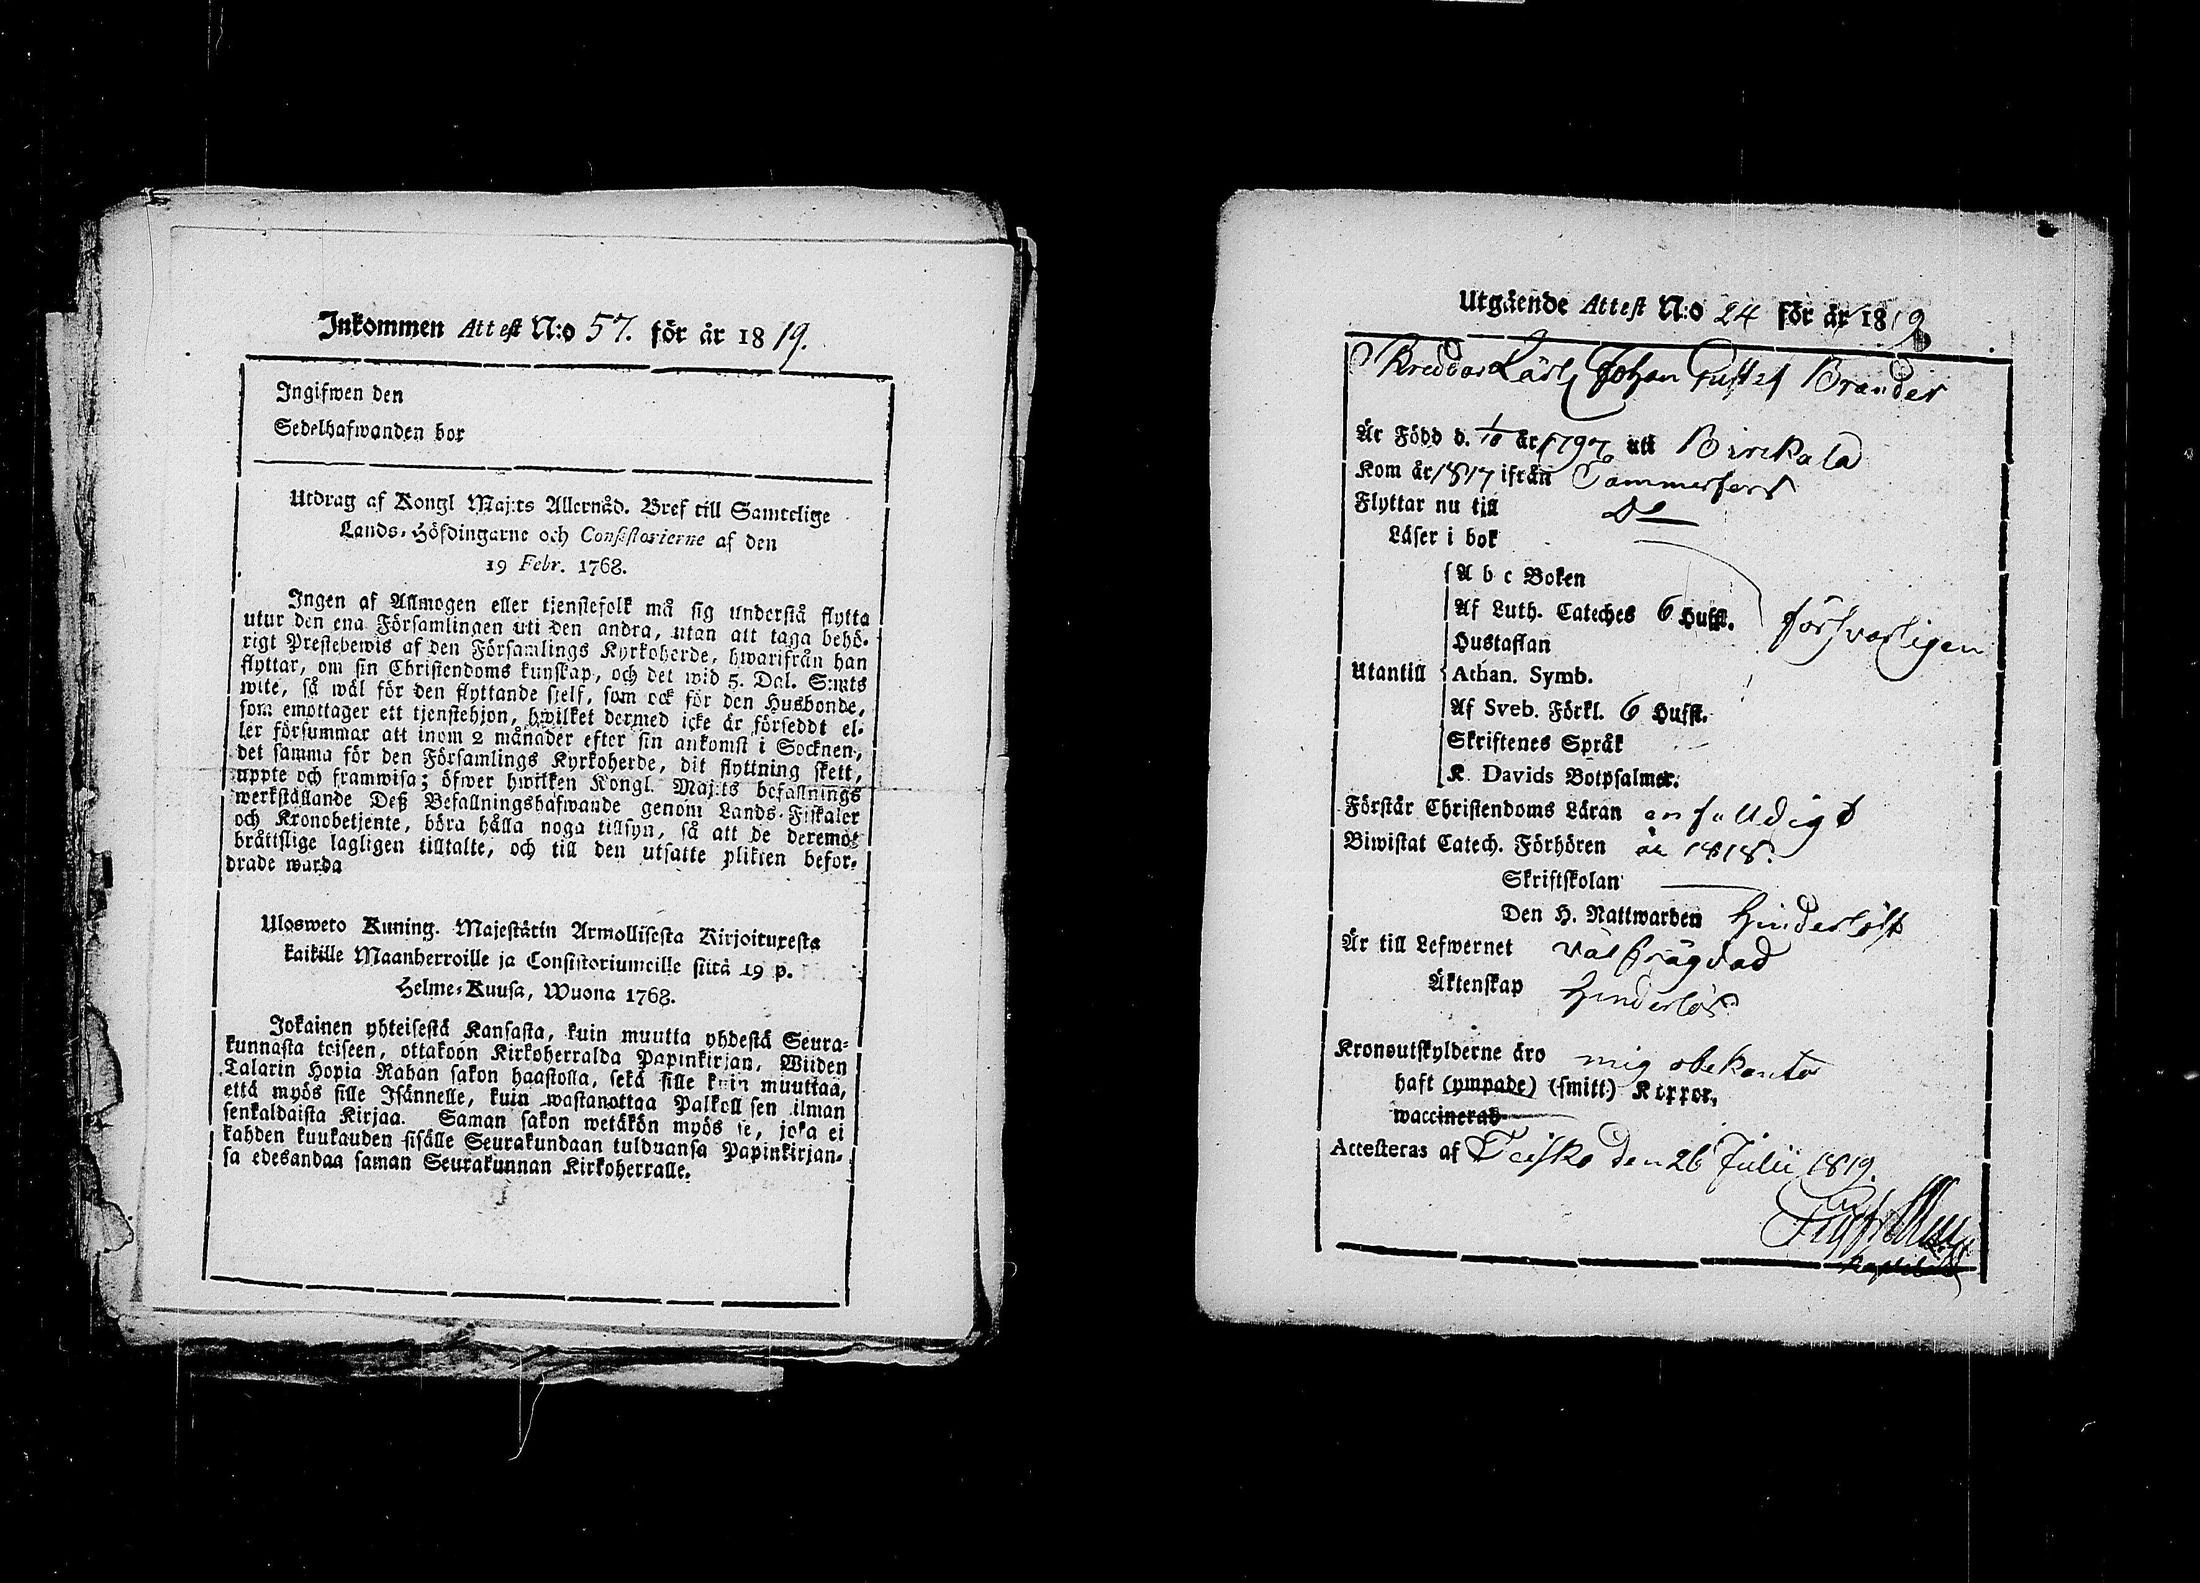 Inkommen Attest N:o 57. för år 1819.
Ingifwen den
Sedelhafwanden bor
Utdrag af Kongl Maj:ts Allernåd. Bref till Samtelige
Lands-Höfdingarne och Consistorierne af den
19 Febr. 1768.
Ingen af Allmogen eller tjenstefolk må sig understå flytta
utur den ena Församlingen uti den andra, utan att taga behö-
rigt Prestebewis af den Församlings Kyrkoherde, hwarifrån han
flyttar, om sin Christendoms kunskap, och det wid 5. Dal. S:mts
wite, så wäl för den flyttande sjelf, som ock för den Husbonde,
som emottager ett tjenstehjon, hwilket dermed icke är försedt el-
ler försummar att inom 2 månader efter sin ankomst i Socknen,
det samma för den Församlings Kyrkoherde, dit flyttning skett,
uppte och framwisa; öfwer hwilken Kongl. Maj:ts befallnings
werkställande Deß Befallningshafwande genom Lands-Fiskaler
och Kronobetjente, böra hålla noga tillsyn, så att de deremot
bråttslige lagligen tilltalte, och till den utsatte plikten befor-
drade warda
Ulosweto Kuning. Majestätin Armollisesta Kirjoituxesta
kaikille Maanherroille ja Consistoriumeille siitä 19 p.
Helme-Kuusa, Wuona 1768.
Jokainen yhteisestä Kansasta, kuin muutta yhdestä Seura-
kunnasta toiseen, ottakoon Kirkoherralda Papinkirjan, Wiiden
Talarin Hopia Rahan sakon haastolla, sekä sille kuin muuttaa,
että myös sille Isännelle, kuin wastanottaa Palkollisen ilman
senkaldaista Kirjaa. Saman sakon wetäkön myös se, joka ei
kahden kuukauden sisälle Seurakundaan tulduansa Papinkirjan-
sa edesandaa saman Seurakunnan Kirkoherralle.
Utgående Attest N:o 24 för år 1819
Karl Johan Gustaf Brander
Är Född d. 1/10 år 1797 uti Birckala
Kom år 1817 ifrån Tammerfors
Flyttar nu till Do
Läser i bok
Abc Boken
Af Luth. Cateches 6 Hufst. försvarligen
Hustaflan
Utantill Athan. Symb.
Af Sveb. Förkl. 6 Hufst.
Skriftenes Språk
K. Davids Botpsalmer.
Förstår Christendoms Läran enfalldigt
Biwistat Catech. Förhören år 1818.
Skriftskolan
Den H. Nattwarden hinderlöst
Är till Lefwernet väl frägdad
Äktenskap hinderlös
Kronoutskylderne äro mig obekanta
haft (ympade) (smitt-) Koppor,
waccinerad
Attesteras af Teisko den 26 Julii 1819.